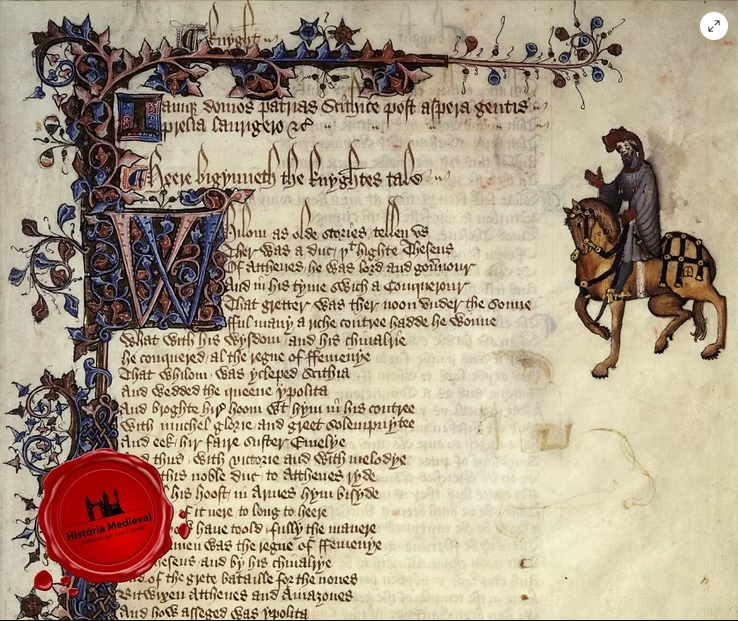 Knyght
Iamque domos patrias Scithice post aspera gentis
prelia laurigero &c
Heere bigynneth the knyghtes tale
Whilom as olde stories tellen vs
Ther was a duc þt highte Theseus
Of Atthenes he was lord and gouernour
And in his tyme swich a Conquerour
That gretter was ther noon vnder the sonne
fful many a riche contree hadde he wonne
What with his wysdom and his chiualrie
he conquered al the regne of ffemenye
That whilom was ycleped Scithia
And wedded the queene ypolita
And broghte hir hoom wt hym in his contree
With muchel glorie and greet solempnytee
And eek hir faire suster Emelye
And thus with victorie and with melodye
this noble duc to Atthenes ryde
his hoost in Armes hym bisyde
if it nere to long to heere
have toold fully the manere
was the regne of ffemenye
Theseus and by his chiualrye
And of the grete bataille for the nones
Bitwixen Atthenes and Amazones
And how asseged was ypolita
História Medieval